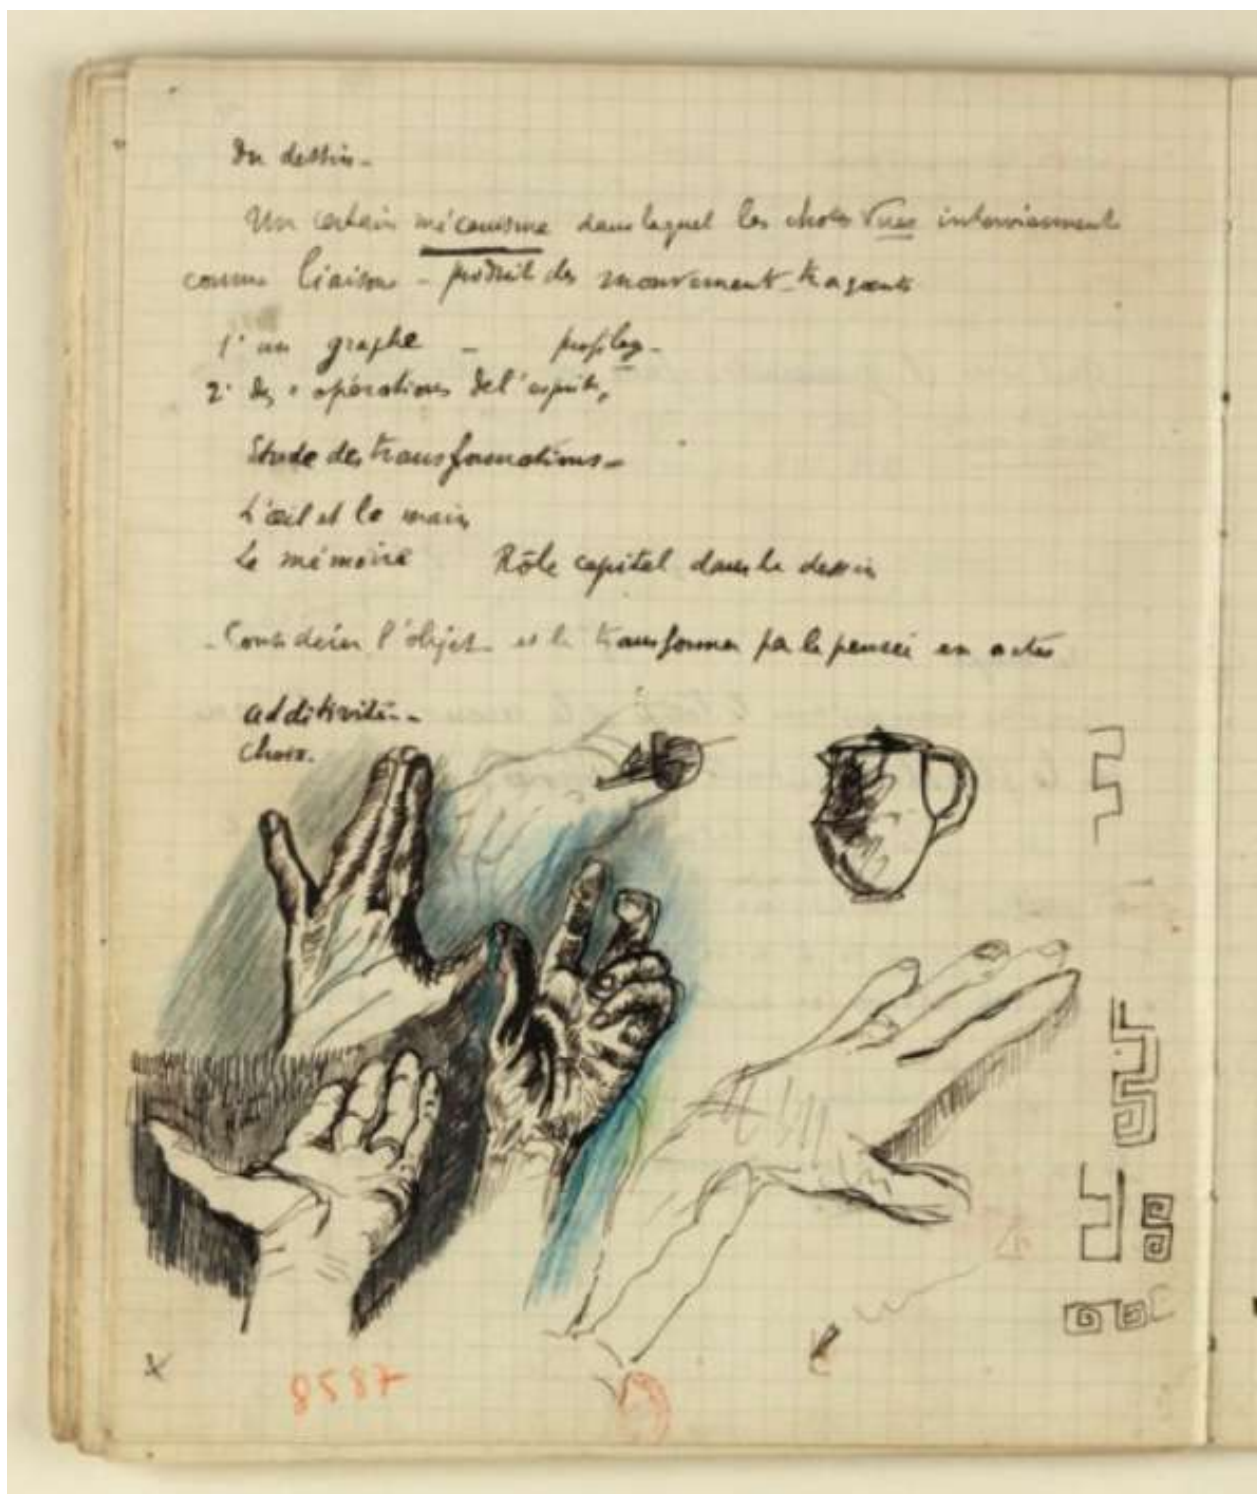 Du dessin -
Un certain mécanisme dans lequel les choses vues interviennent
comme liaisons - produit des mouvements traçants
1° un graphe -
2° des opérations de l'esprit,
Etude des transformations -
L'œil et la main
La mémoire Rôle capital dans le dessin
- Considérer l'objet et le transformer par la pensée en actes
additivité -
choix.